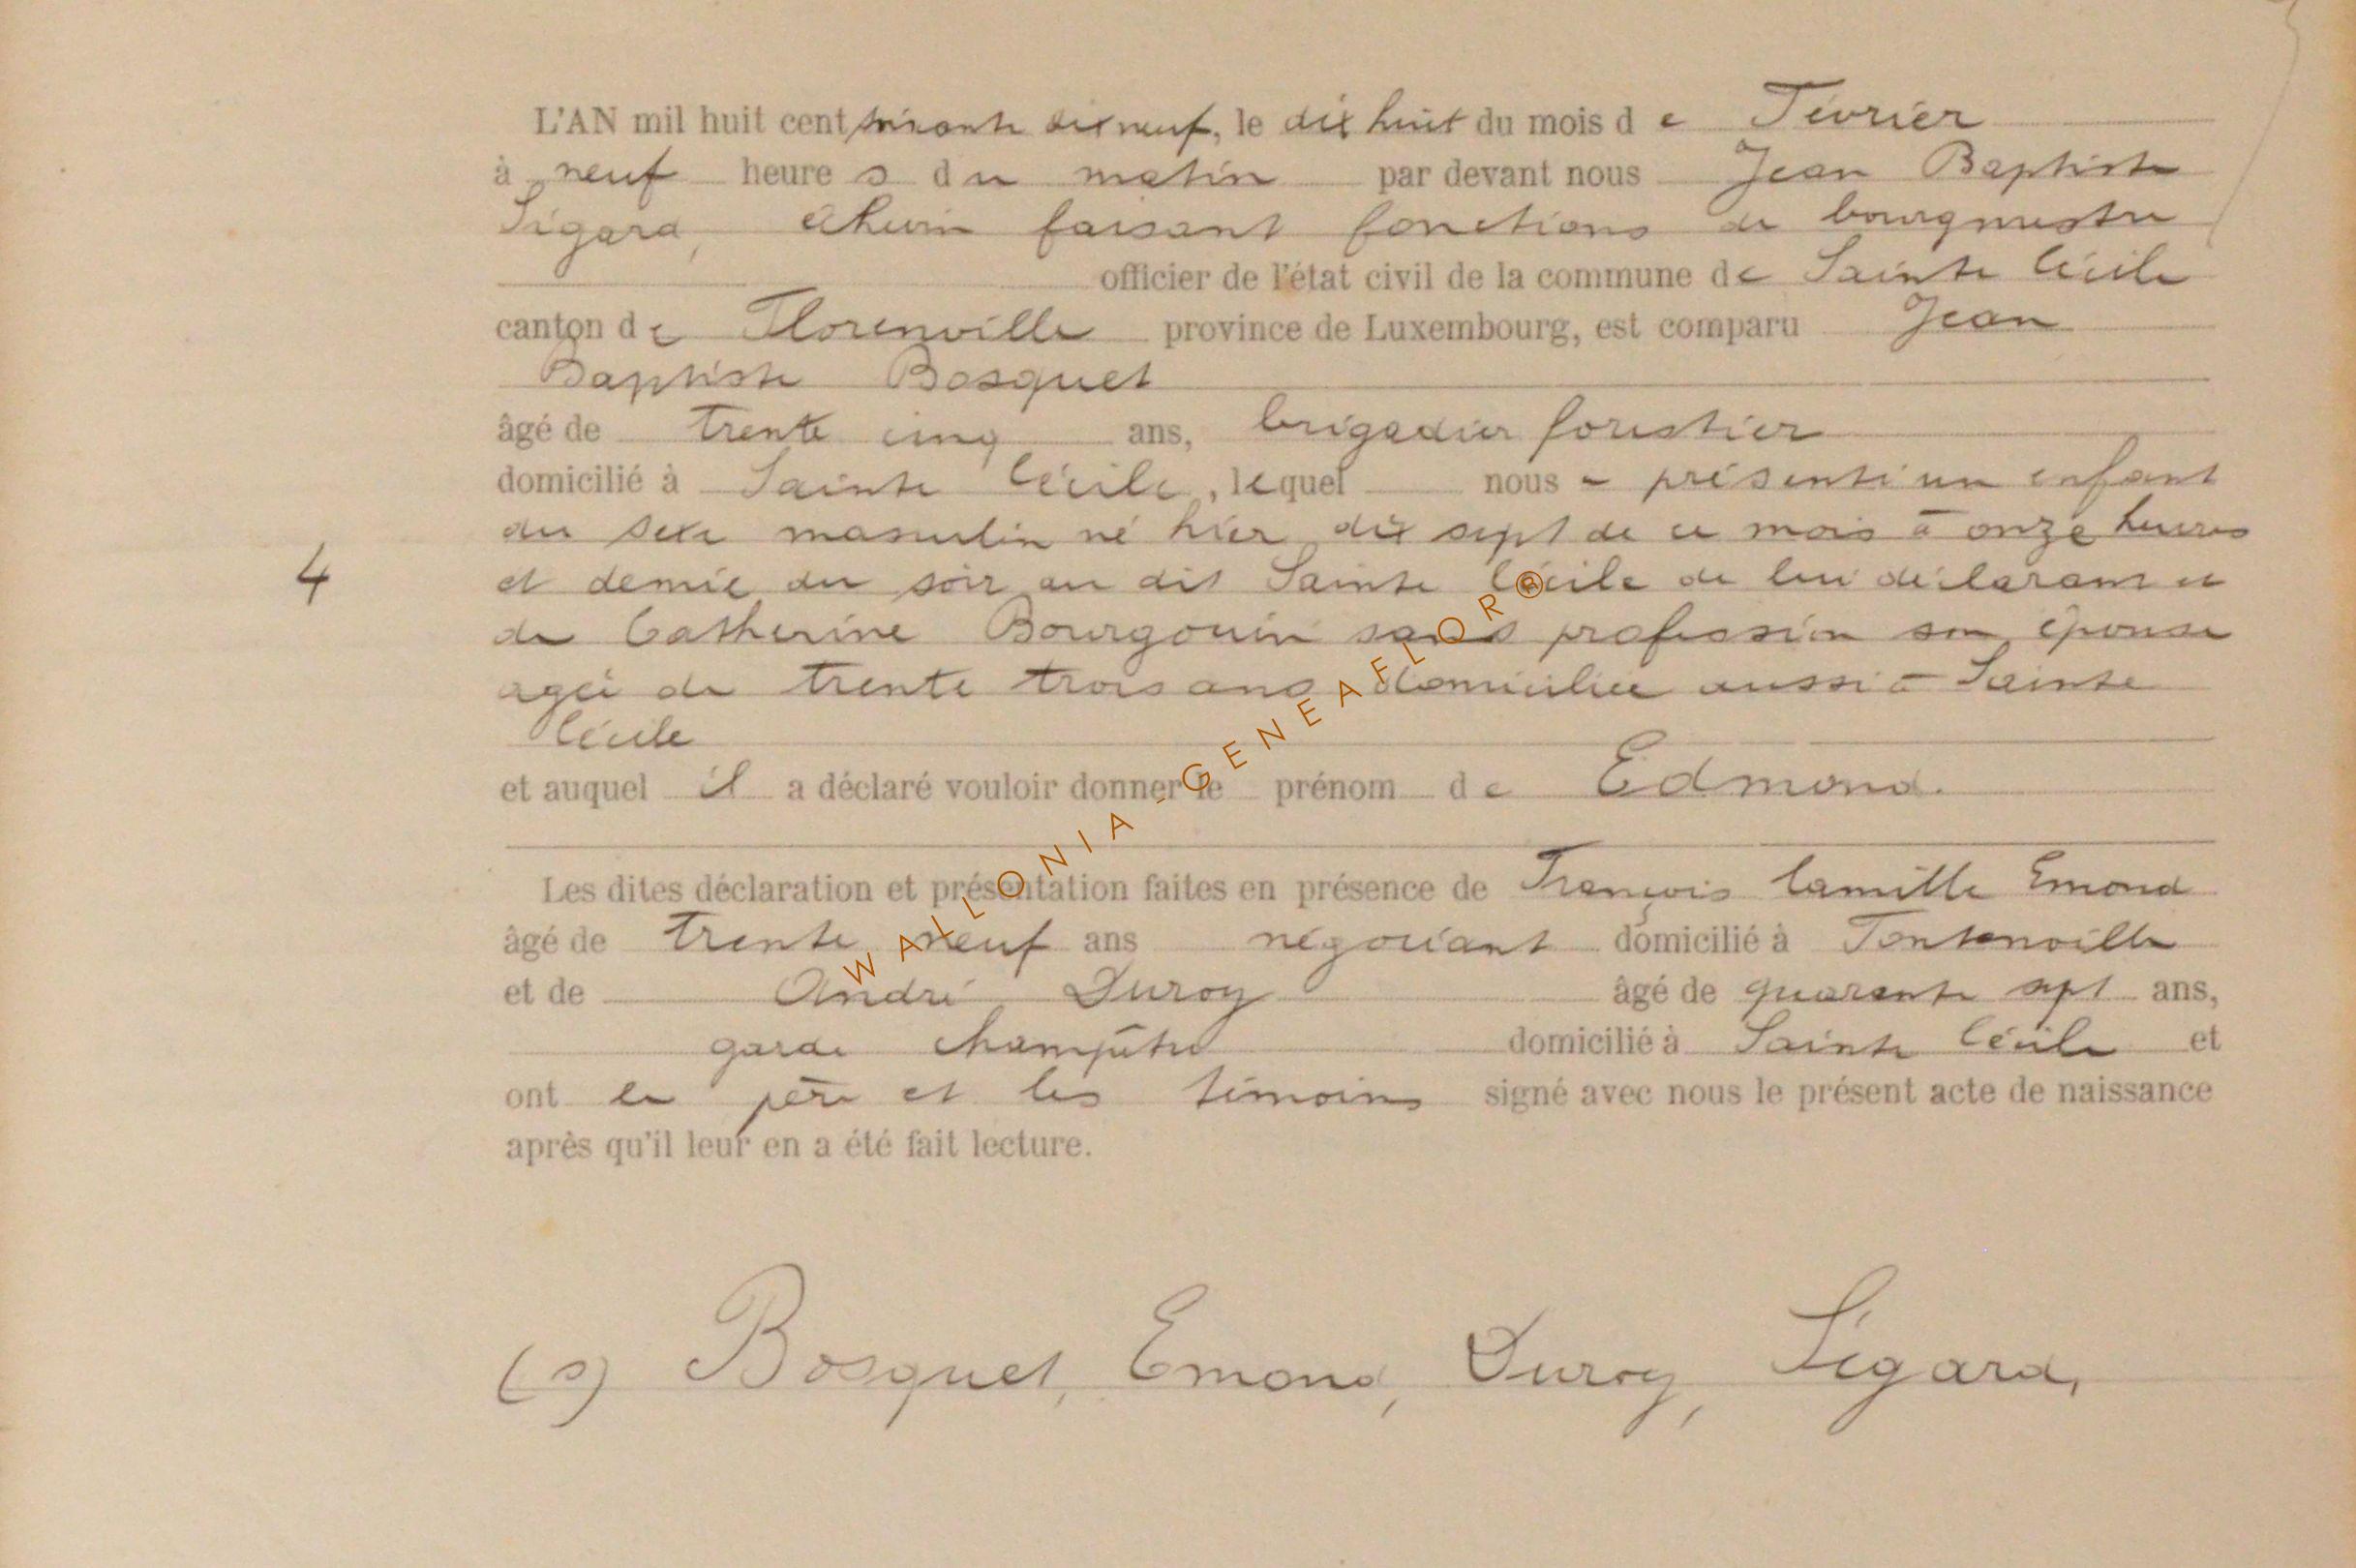 L'AN mil huit cent soixante dix neuf, le dix huit du mois d e Février
à neuf heure s d u matin par devant nous Jean Baptiste
Ségard, échevin faisant fonctions de bourgmestre
officier de l'état civil de la commune de Sainte Cécile
canton de Florenville province de Luxembourg, est comparu Jean
Baptiste Bosquet
âgé de trente cinq ans, brigadier forestier
domicilié à Sainte Cécile, lequel nous a présenté un enfant
du sexe masculin né hier dix sept de ce mois à onze heures
et demie du soir au dit Sainte Cécile de lui déclarant et
de Catherine Bourgouin sans profession son épouse
agée de trente trois ans domiciliée aussi à Sainte
4
Cécile
et auquel il a déclaré vouloir donner le prénom de Edmond.
Les dites déclaration et présentation faites en présence de François Camille Emond
âgé de trente neuf ans négociant domicilié à Fontenoille
et de André Duroy âgé de quarante sept ans,
garde champêtre domicilié à Sainte Cécile et
ont le père et les témoins signé avec nous le présent acte de naissance
après qu'il leur en a été fait lecture.
(s) Bosquet, Emond, Duroy, Ségard,
WALLONIA-GENEAFLOR®